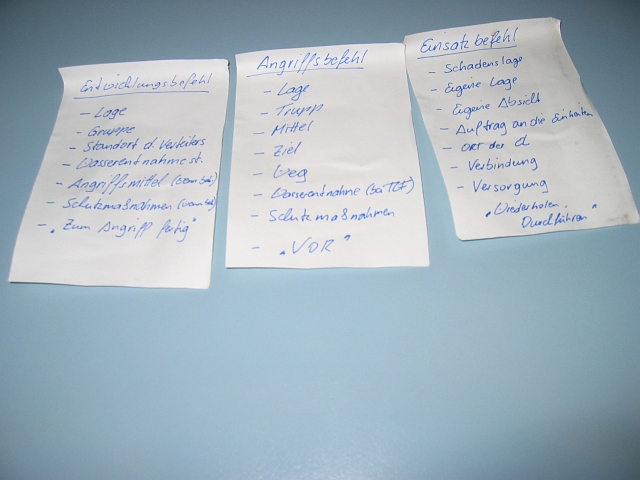 Entwicklungsbefehl
- Lage
- Gruppe
- Standort d. Verteilers
- Wasserentnahmest.
- Angriffsmittel (wenn bek.)
- Schutzmaßnahmen (wenn bek.)
- "Zum Angriff fertig"
Angriffsbefehl
- Lage
- Trupp
- Mittel
- Ziel
- Weg
- Wasserentnahme (bei TLF)
- Schutzmaßnahmen
- "VOR"
Einsatzbefehl
- Schadenslage
- Eigene Lage
- Eigene Absicht
- Auftrag an die Einheiten
- ORT der
- Verbindung
- Versorgung
"Wiederholen,
Durchführen"